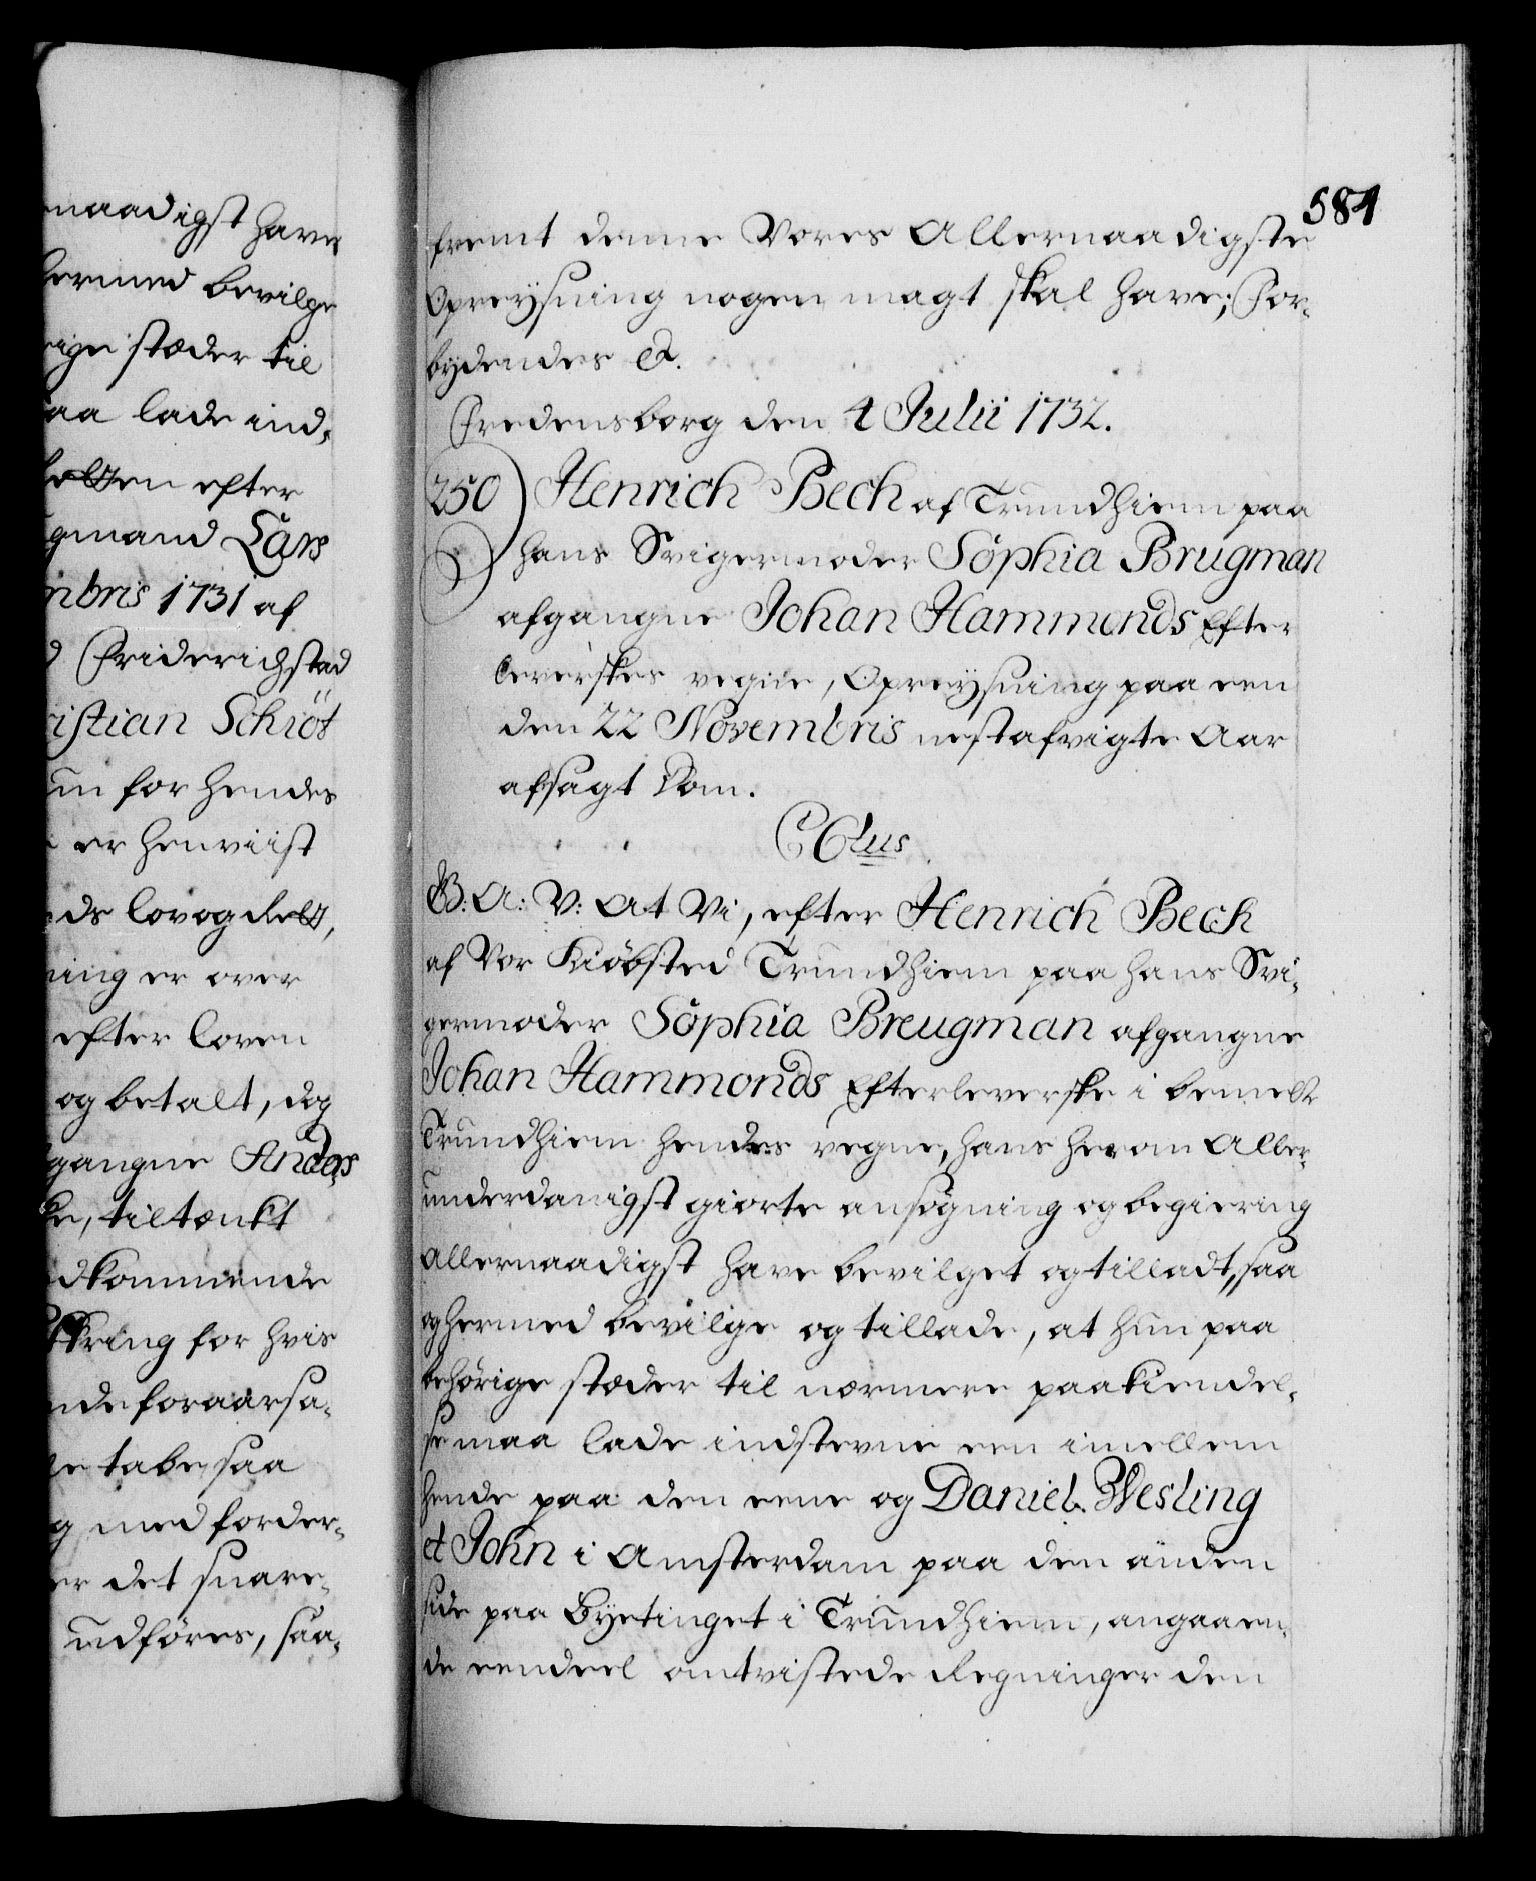 naadigst have
hermed bevilge
rige stæder til
aa lade ind-
holten efter
gmand Lars
mbris 1731 af
d Friderichstad
istian Schiöt
un for hendes
er henviist
ds lovog Rett,
ning er over
efter loven
og betalt, dog
gangne Anders
ke, tiltænkt
dkommende
kring for hvis
nde foraarsa-
le tabe, saa
g med forder-
er det snare-
udföres, saa-
584
fremt denne Vores Allernaadigste
Opreysning nogen magt skal have; For-
bydendes &.
Fredensborg den 4 Julii 1732.
250) Henrich Bech af Trundhiem paa
hans Svigermoder Sophia Brugman
afgangne Johan Hammonds Efter
leverskes vegne, Opreysning paa een
den 22 Novembris nestafvigte Aar
afsagt Dom.
C 6tus
G. A: V: At Vi, efter Henrich Bech
af Vor Kiöbsted Trundhiem paa hans Svi-
germoder Sophia Breugman afgangne
Johan Hammonds Efterleverske i bemelte
Trundhiem hendes vegne, hans herom Aller-
underdanigst giorte ansøgning og begiering
Allernaadigst have bevilget og tilladt, saa
og hermed bevilge og tillade, at hun paa
behörige stæder til nærmere paakiendel-
se maa lade indstevne een imellem
hende paa den eene og Daniel Wesling
et John i Amsterdam paa den anden
side paa Byetinget i Trundhiem, angaaen-
de eendeel omtvistede Regninger den